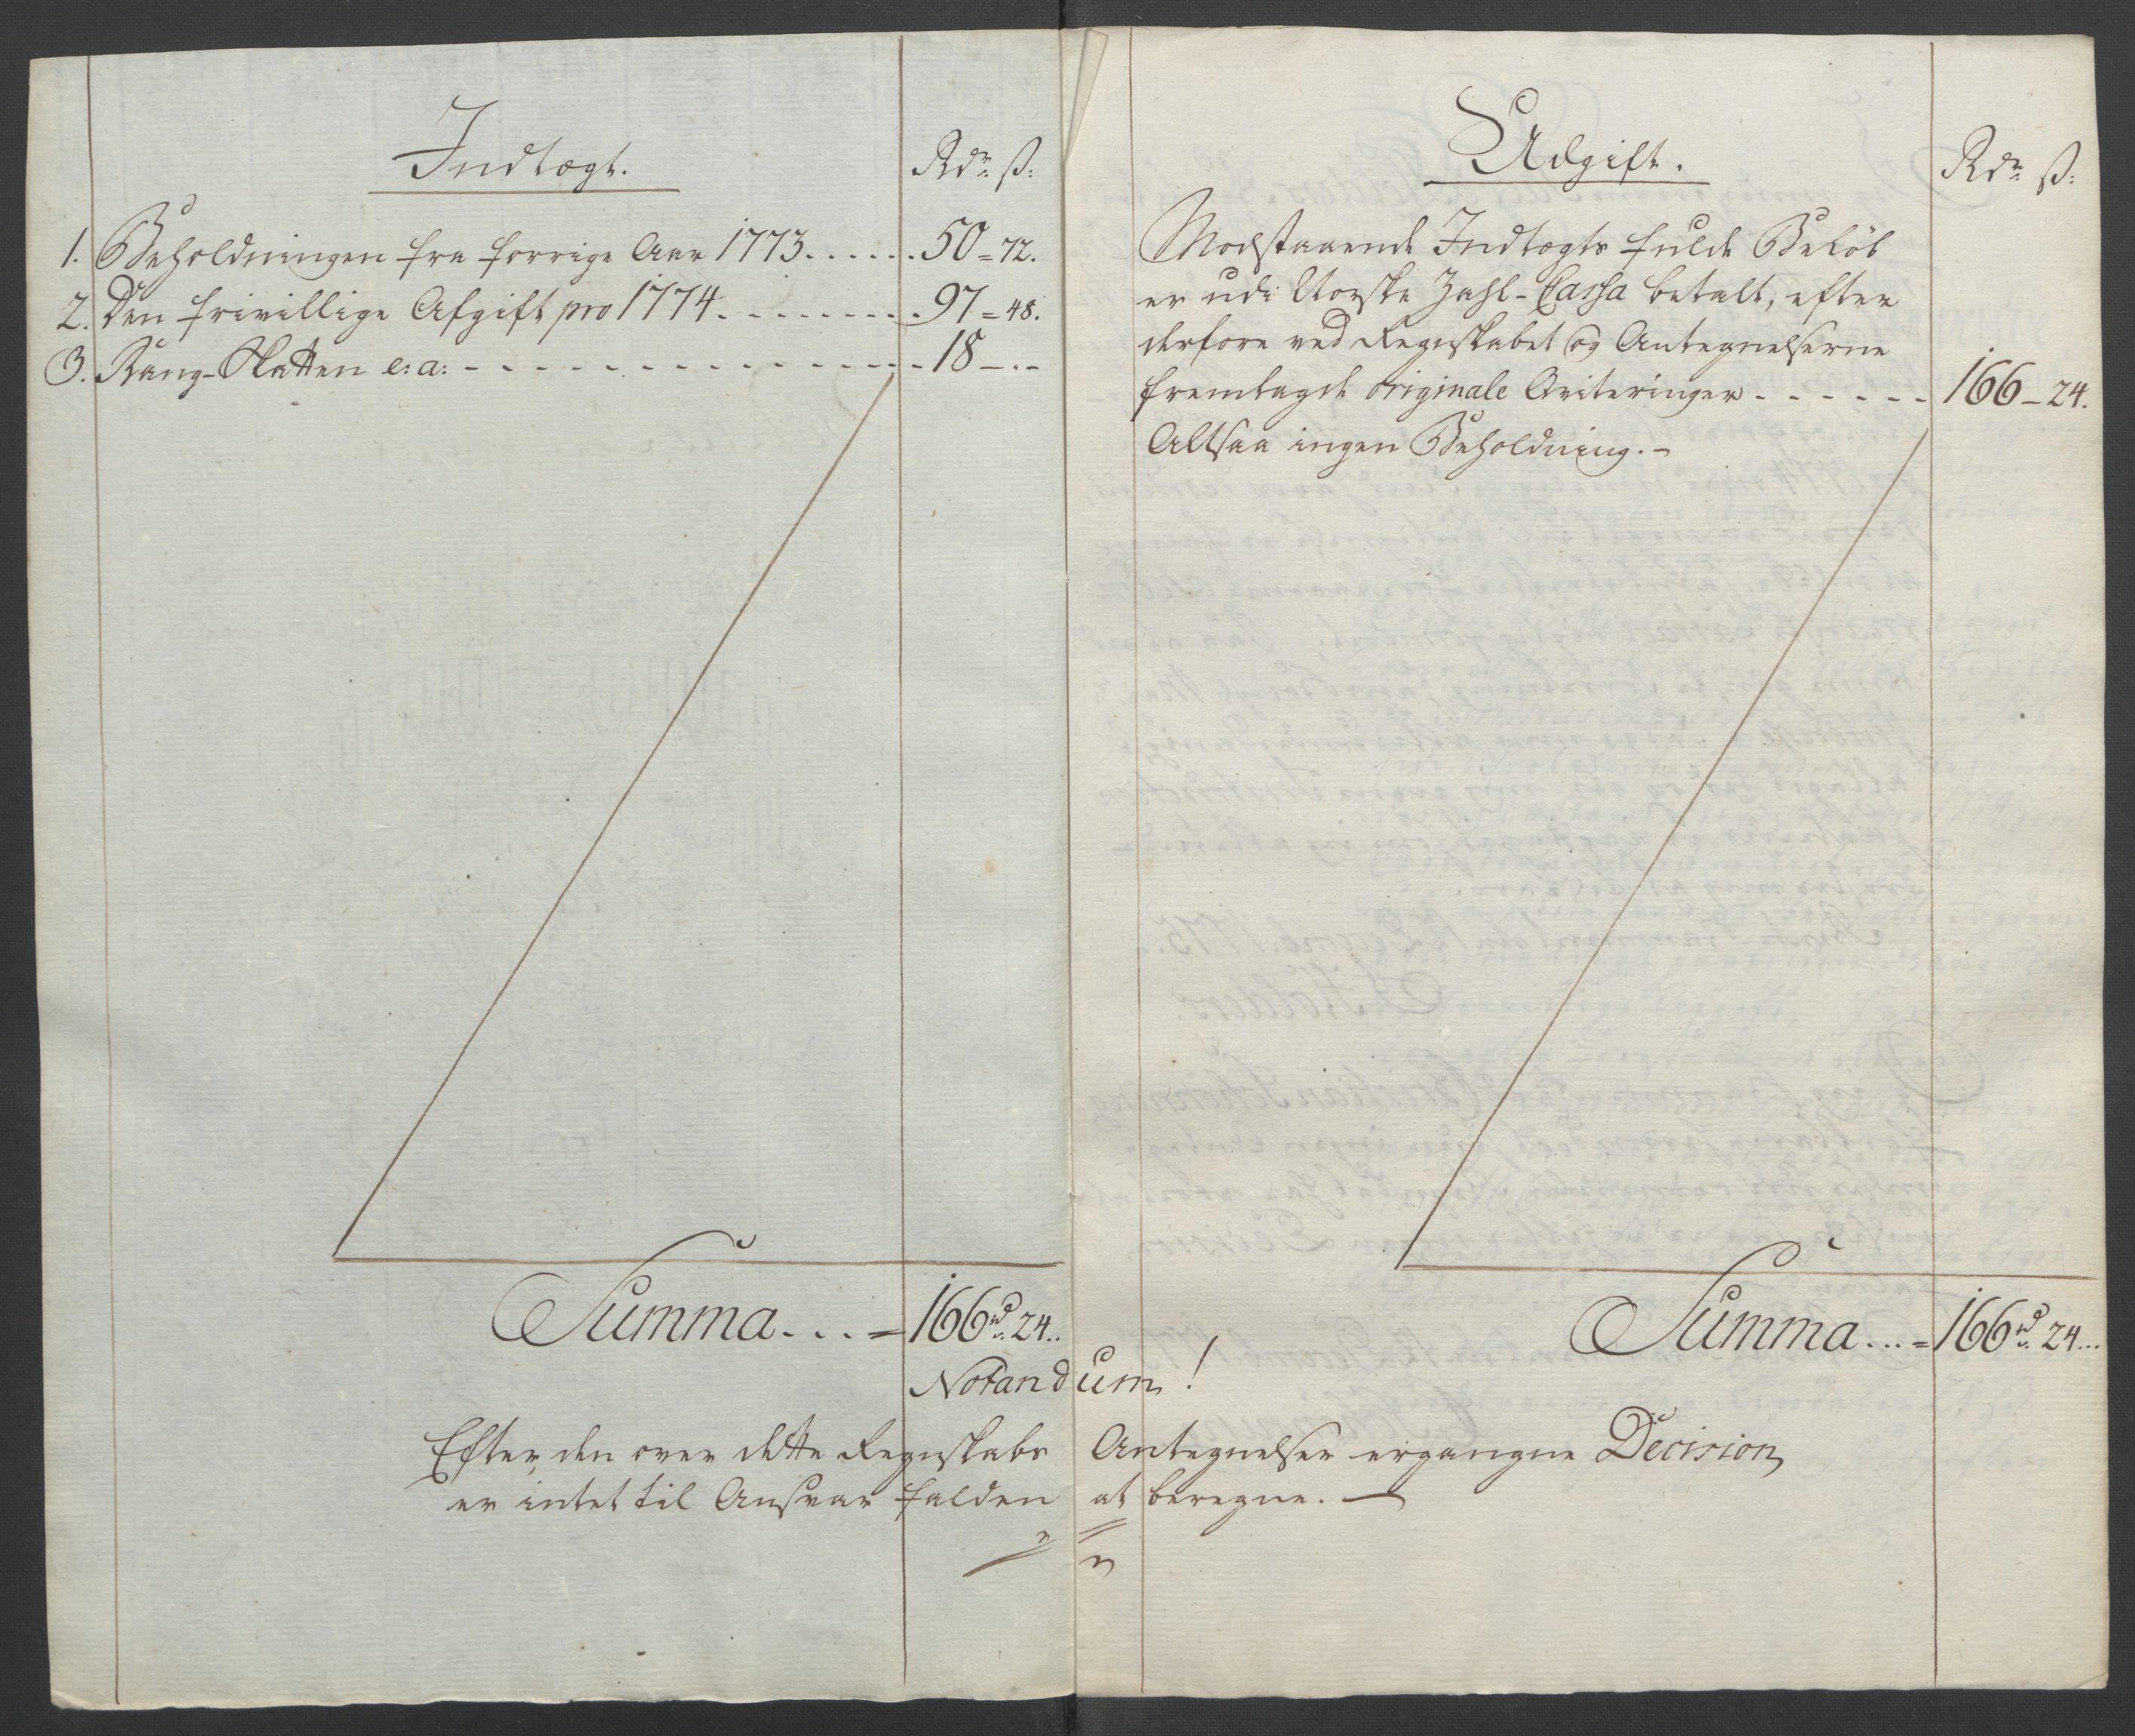 Indtægt.
Rdr ß:
1. Beholdningen fra forrige Aar 1773. . . . . . 50 = 72.
2. Den frivillige Afgift pro 1774. . . . . . . . 97 = 48.
3. Rang-Skatten e: a: - - - - - - - - - - - - - 18 - . -
Summa. . . = 166rd 24..
Udgift.
Rdr ß:
Modstaaende Indtægts fulde Beløb
er udi Norske Zahl-Cassa betalt, efter
derfore ved Regnskabet og Antegnelserne
fremlagde originale Qviteringer - - - - - - 166 - 24.
Altsaa ingen Beholdning. -
Summa... = 166rd 24...
Notandum!
Efter den over dette Regnskabs Antegnelser ergangne Decision,
er intet til Ansvar falden at beregne. —